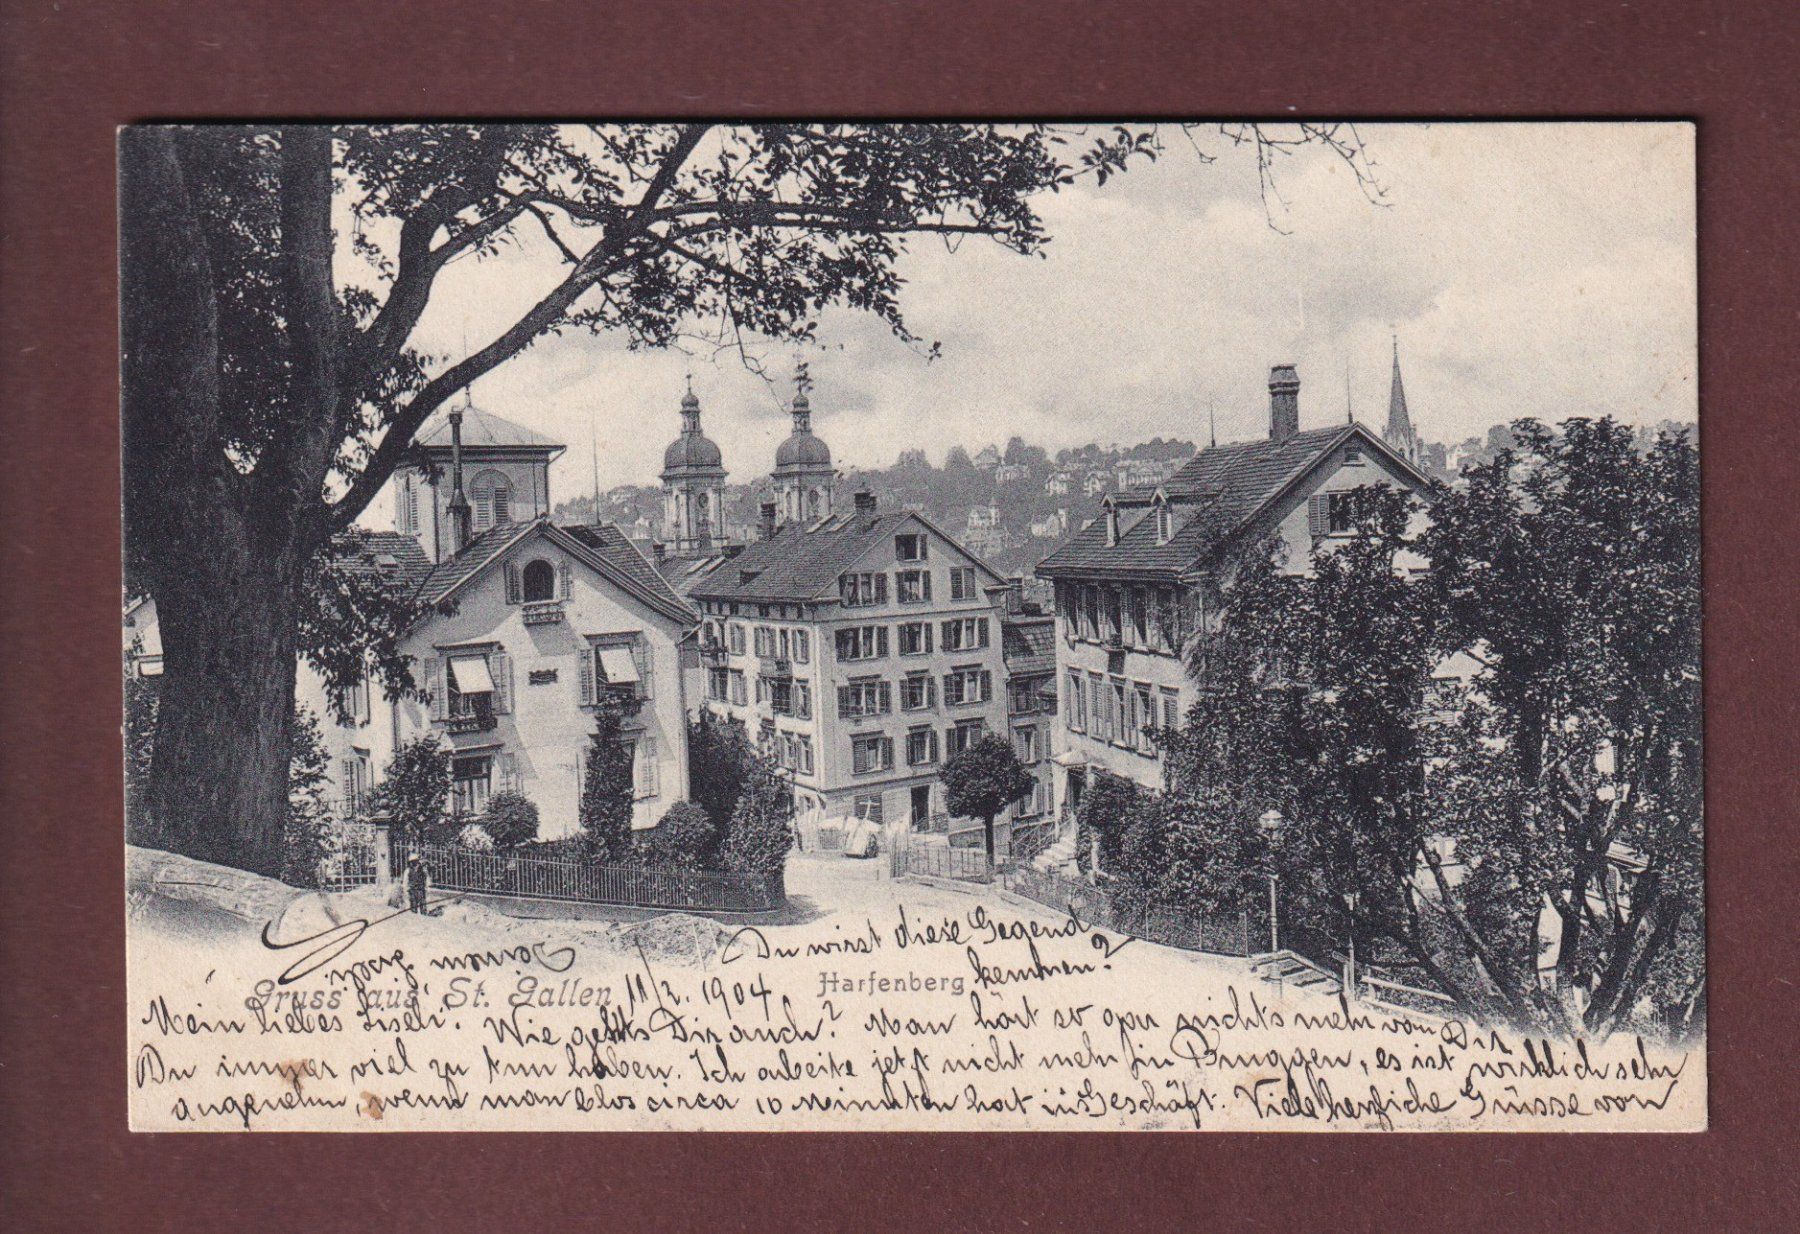 Du wirst diese Gegend
kennen?
Gruss aus St. Gallen 11/2. 1904 Harfenberg
Mein liebes Liseli. Wie geht's Dir auch? Man hört so gar nichts mehr von Dir
Du immer viel zu tun haben. Ich arbeite jetzt nicht mehr in Bruggen, es ist wirklich sehr
angenehm, wenn man blos circa 10 Minuten hat ins Geschäft. Viele herzliche Grüsse von